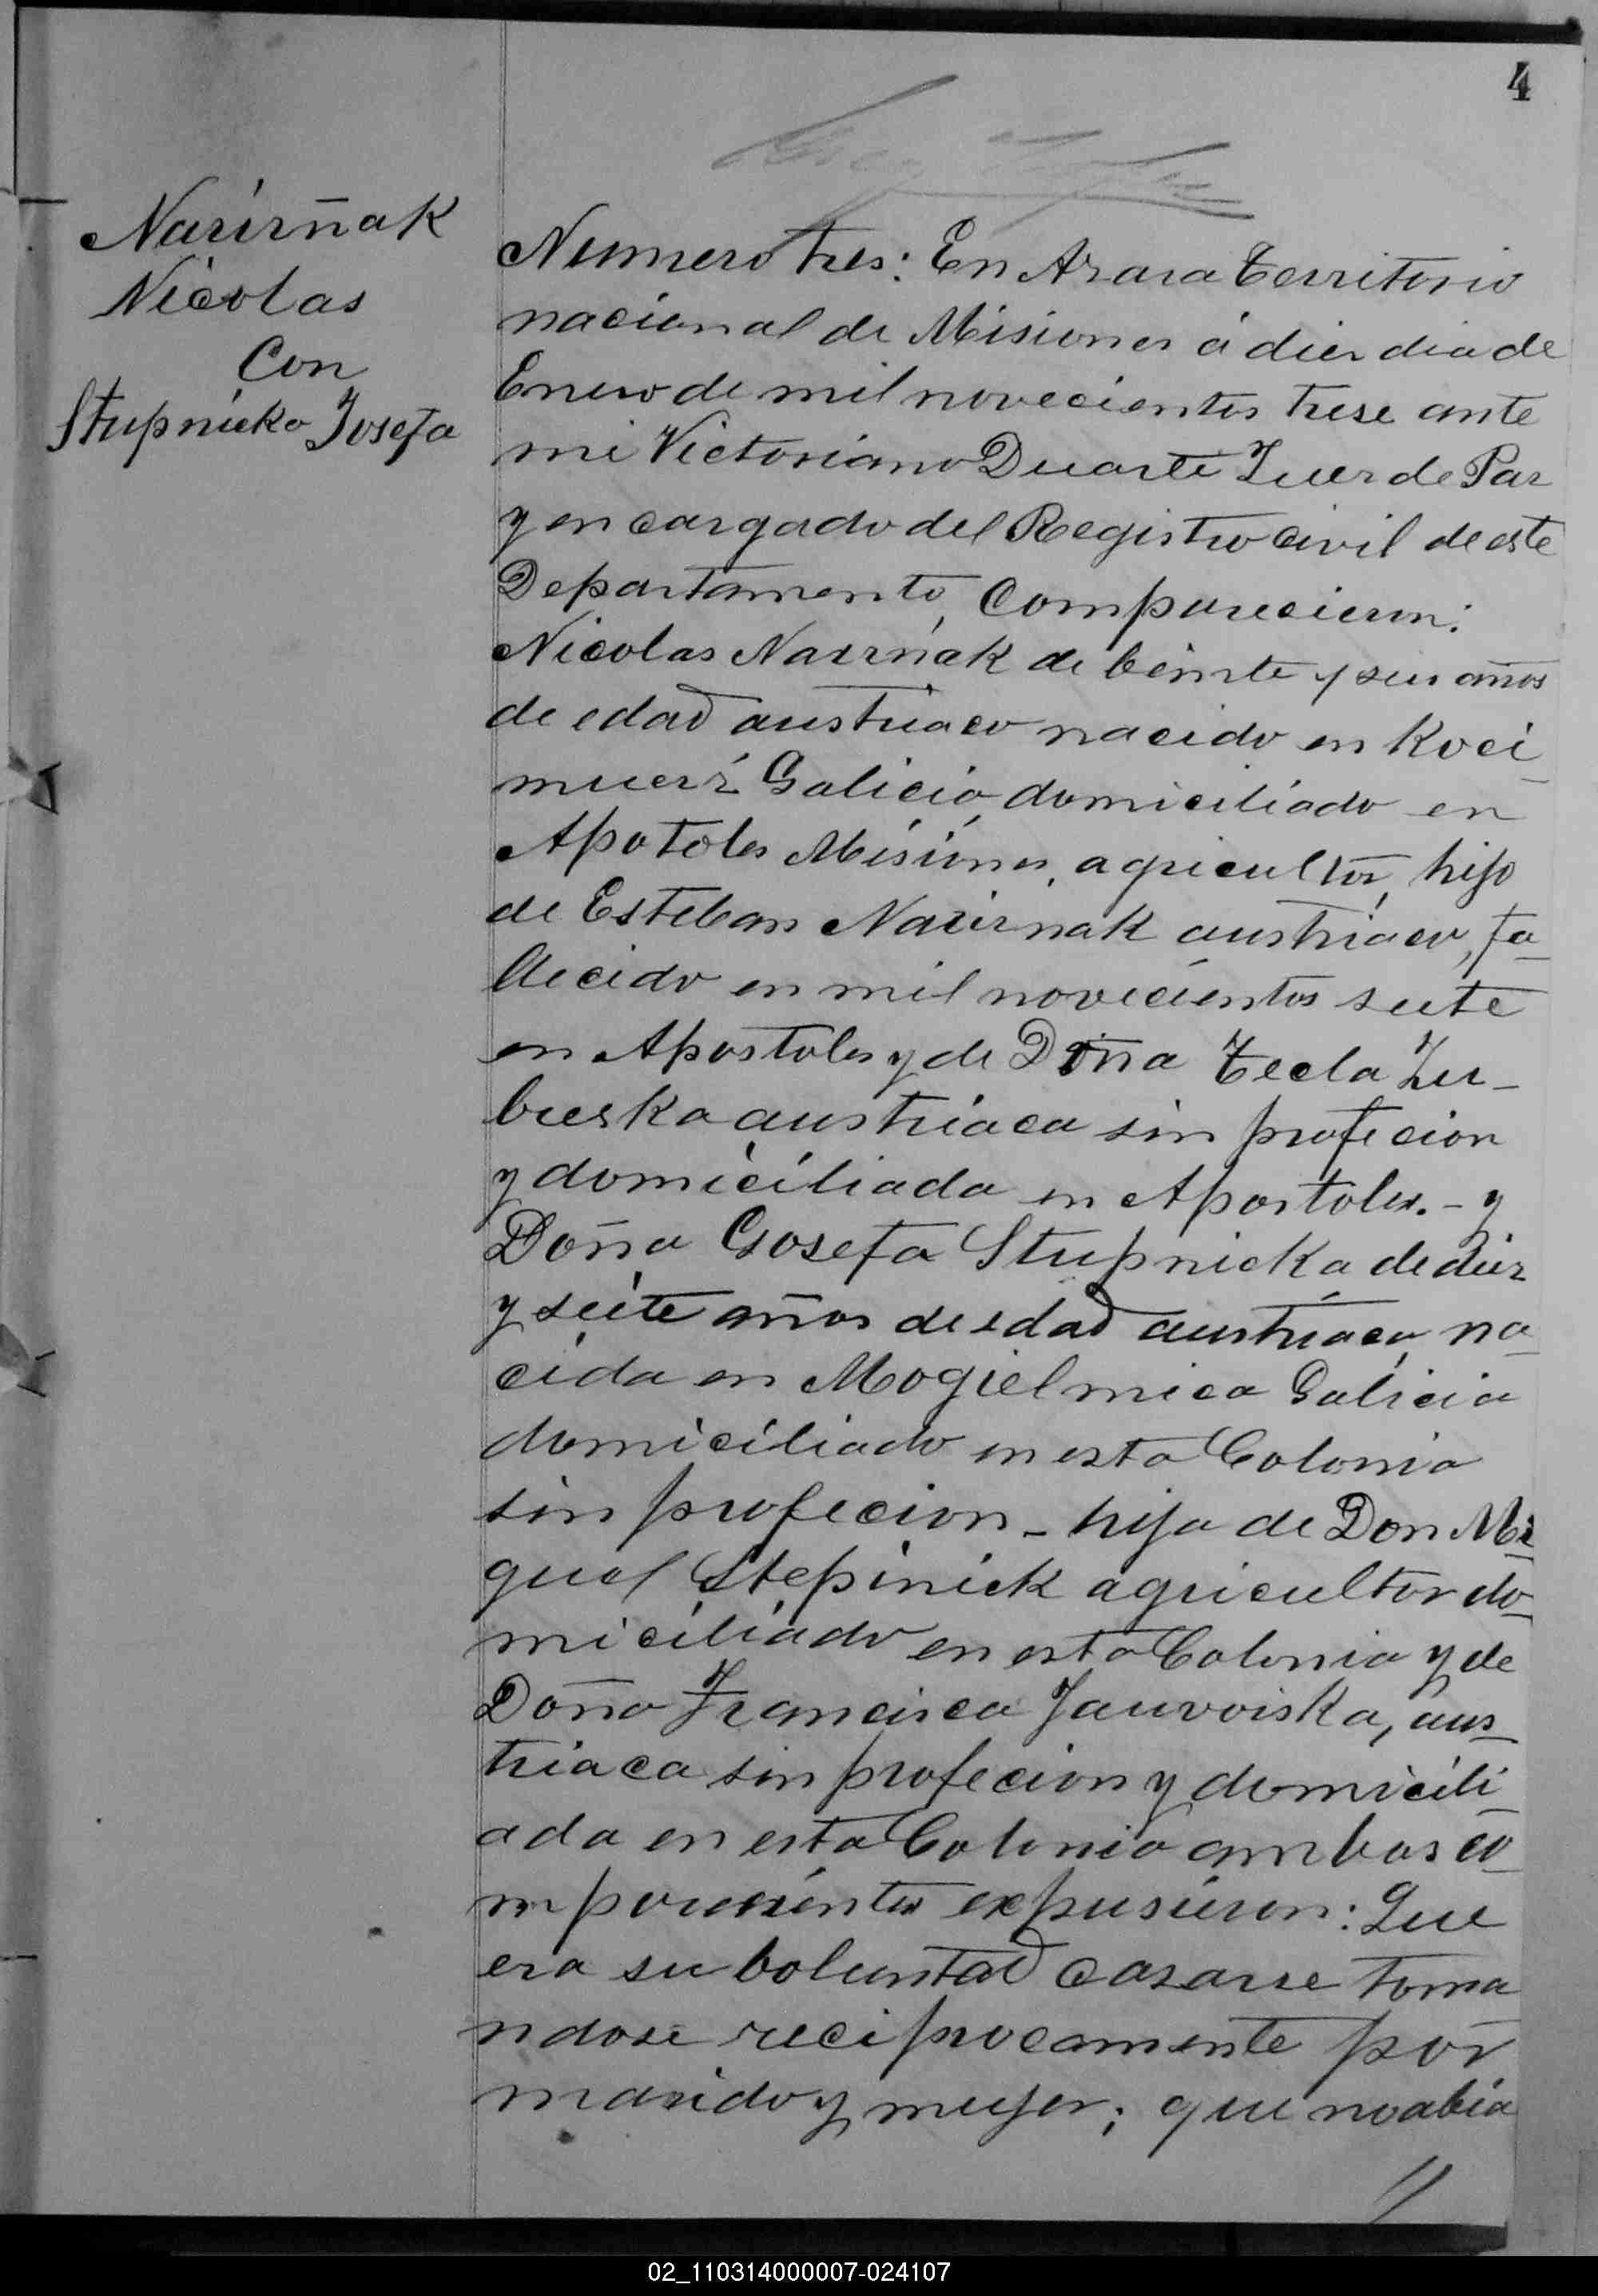 4
Nazirñak
Nicolas
Con
Stupnicka Josefa
Numero tres: En Azara Territorio
nacional de Misiones á diez dia de
Enero de mil novecientos trese ante
mi Victoriano Duarte Juez de Paz
y encargado del Registro Civil de este
Departamento, Comparecieron:
Nicolas Nazrñak de beinte y seis años
de edad austriaco nacido en Koci
muerz Galicia, domiciliado en
Apotoles Misiones, agricultor, hijo
de Esteban Nazirnak austriaco, fa-
llecido en mil novecientos siete
en Apostoles y de Doña Tecla Zu-
breska austriaca sin profecion
y domiciliada en Apostoles. - y
Doña Gosefa Stupnicka de diez
y seite años de edad austriaca, na
cida en Mogielmica Galicia
domiciliado en esta Colonia
sin profecion - hija de Don Mi-
guel Stepinick agricultor do-
miciliado en esta Colonia y de
Doña Francisca Jauvoiska, aus-
triaca sin profecion y domicili-
ada en esta Colonia ambos co-
mparecientes expusieron: Que
era su boluntad casarse toma
ndose reciprocamente por
marido y mujer; que no abia
02_110314000007-024107